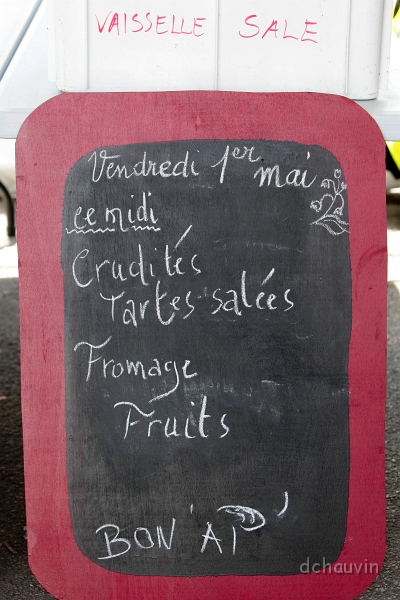 VAISSELLE SALE
Vendredi 1er mai
ce midi
Crudités
Tartes salées
Fromage
Fruits
BON 'AP'
dchauvin